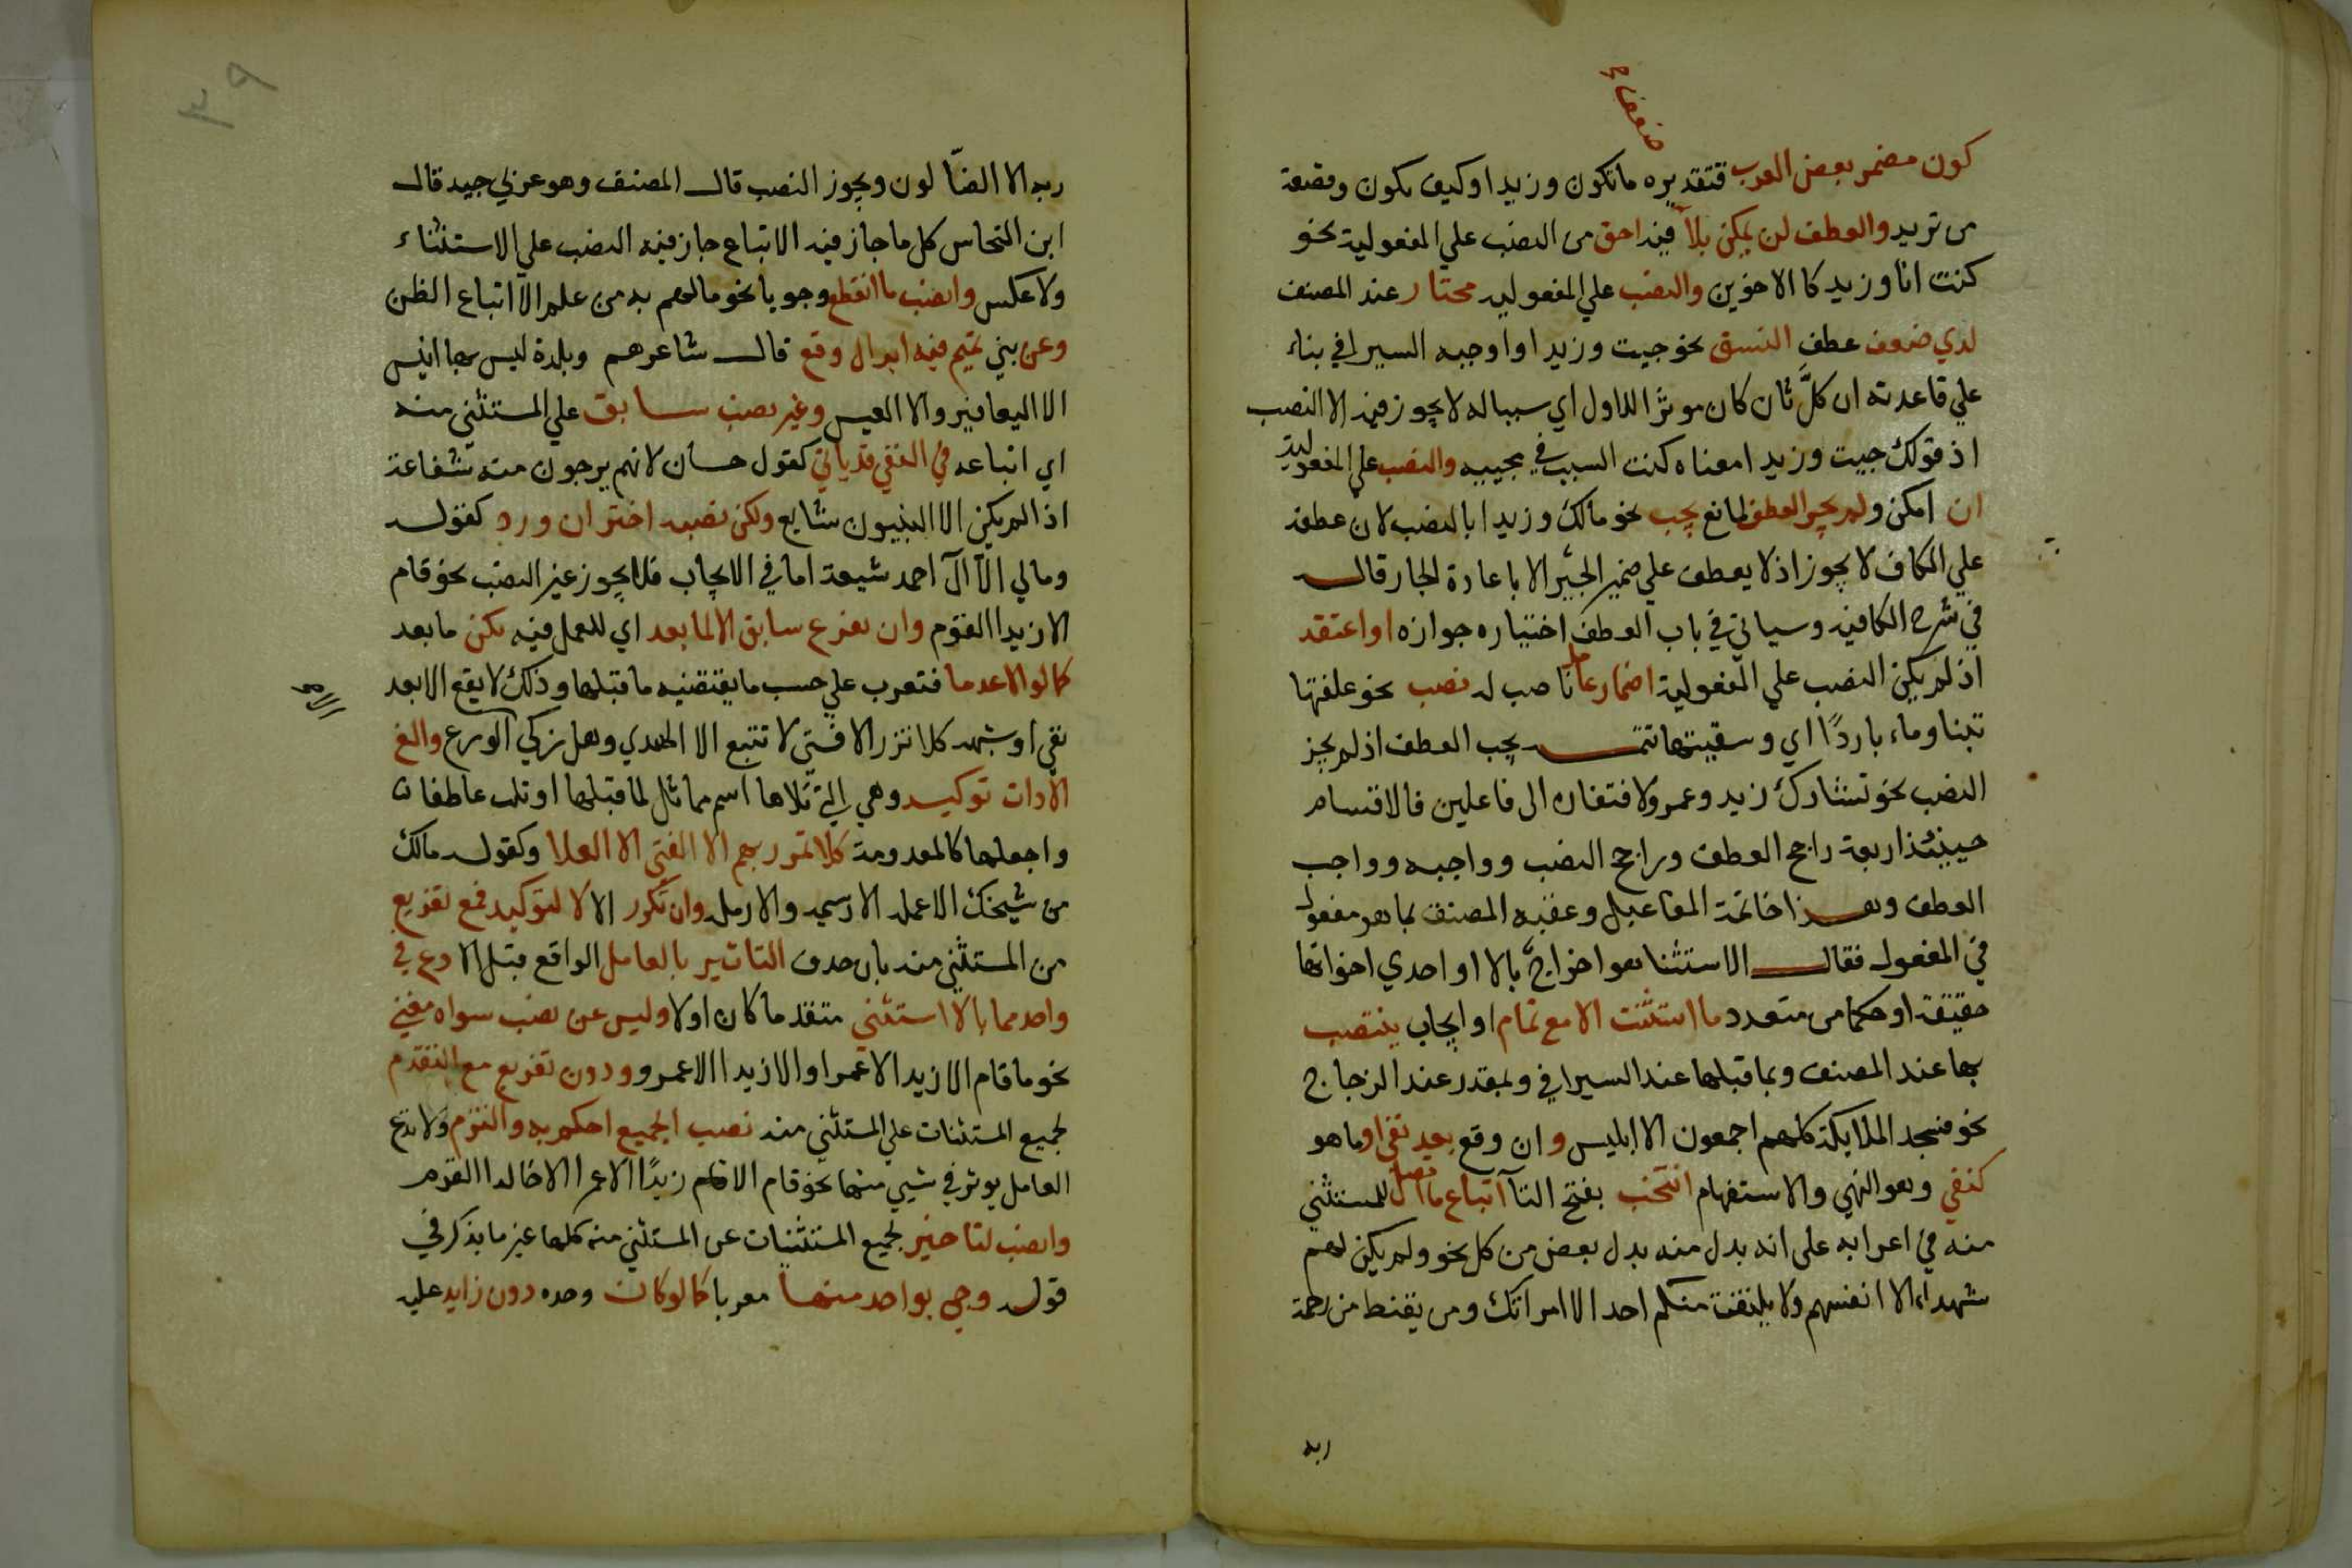 كون مضمر بعض العرب فتقديره ما تكون وزيدا وكيف تكون وقصعة
من تريد والعطف ان يمكن بلا فيه احق من النصب علي المفعولية نحو
كنت انا وزيد كالاخوين والنصب علي المفعوليه مختار عند المصنف
لدي ضعف عطف النسق نحو جيت وزيدا واوجبه السيرافي بناء
علي قاعدته ان كلَّ ثان كان موثرا للاول اي سببا له لا يجوز فيه الا النصب
اذ قولك جيت وزيدا معناه كنت السبب في مجييه والنصب علي المفعولية
ان امكن ولم يجز العطف لمانع يجب نحو مالك وزيدا بالنصب لان عطفه
علي الكاف لا يجوز اذ لا يعطف علي ضمير الجر الا باعادة الجار قال
في شرح الكافية وسياتي في باب العطف اختياره جوازه او اعتقد
اذ لم يكن النصب علي المفعولية اضمار عامل ناصب له نصب نحو علفتها
تبنا وماء باردًا اي وسقيتها تتمة يجب العطف اذ لم يجز
النصب نحو تشارك زيد وعمرو لافتقاره الى فاعلين فالاقسام
حينئذ اربعة راجح العطف وراجح النصب وواجبه وواجب
العطف وهذا خاتمة المفاعيل وعقبه المصنف بما هو مفعول
في المفعول فقال الاستثنا هو اخراج بالا او احدي اخواتها
حقيقة او حكما من متعدد ما استثنت الا مع تمام او ايجاب ينتصب
بها عند المصنف وبما قبلها عند السيرافي وبمقدر عند الزجاج
نحو فسجد الملايكة كلهم اجمعون الا ابليس وان وقع بعد نفي او ما هو
كنفي وهو النهي والاستفهام انتخب بفتح التا اتباع ما اتصل للمستثني
منه في اعرابه على انه بدل منه بدل بعض من كل نحو ولم يكن لهم
شهداء الا انفسهم ولا يلتفت منكم احد الا امراتك ومن يقنط من رحمة
ربه
٣٩
ربه الا الضّالون ويجوز النصب قال المصنف وهو عربي جيد قال
ابن النحاس كل ما جاز فيه الاتباع جاز فيه النصب علي الاستثناء
ولا عكس وانصب ما انقطع وجوبا نحو مالهم به من علم الا اتباع الظن
وعن بني تميم فيه ابدال وقع قال شاعرهم وبلدة ليس بها انيس
الا اليعافير والا العيس وغير نصب سابق علي المستثني منه
اي اتباعه في النفي قد ياتي كقول حسان لانهم يرجون منه شفاعة
اذا لم يكن الا النبيون شايع ولكن نصبه اختر ان ورد كقوله
ومالي الّا آل احمد شيعة اما في الايجاب فلا يجوز غير النصب نحو قام
الا زيدا القوم وان يفرغ سابق الا لما بعد اي للعمل فيه يكن ما بعد
كما لو الا عدما فتعرب علي حسب ما يقتضيه ما قبلها وذلك لا يقع الا بعد
نفي او شبهه كلا تزر الا فتى لا تتبع الا الهدي وهل زكي الا الورع والغ
الا ذات توكيد وهي التي تلاها اسم مماثل لما قبلها او تلت عاطفا
واجعلها كالمعدومة كلا تمرر بهم الا الفتي الا العلا وكقوله مالك
من شيخك الا عمله الا رسيمه والا رمله وان تكرر الا لا لتوكيد فمع تفريع
من المستثني منه بان حذف التاثير بالعامل الواقع قبل الا دع في
واحد مما بالا استثني متقدما كان او لا وليس عن نصب سواه مغني
نحو ما قام الا زيد الا عمرا او الا زيدا الا عمرو ودون تفريع مع التقدم
لجميع المستثنات علي المستثني منه نصب الجميع احكم به والتزم ولا تدع
العامل يوثر في شيي منها نحو قام الا زيدًا الا عمرا الا خالدا القوم
وانصب لتاخير لجميع المستثنيات عن المستثني منه كلها غير ما يذكر في
قوله وجي بواحد منها معربا كما لو كان وحده دون زايد عليه